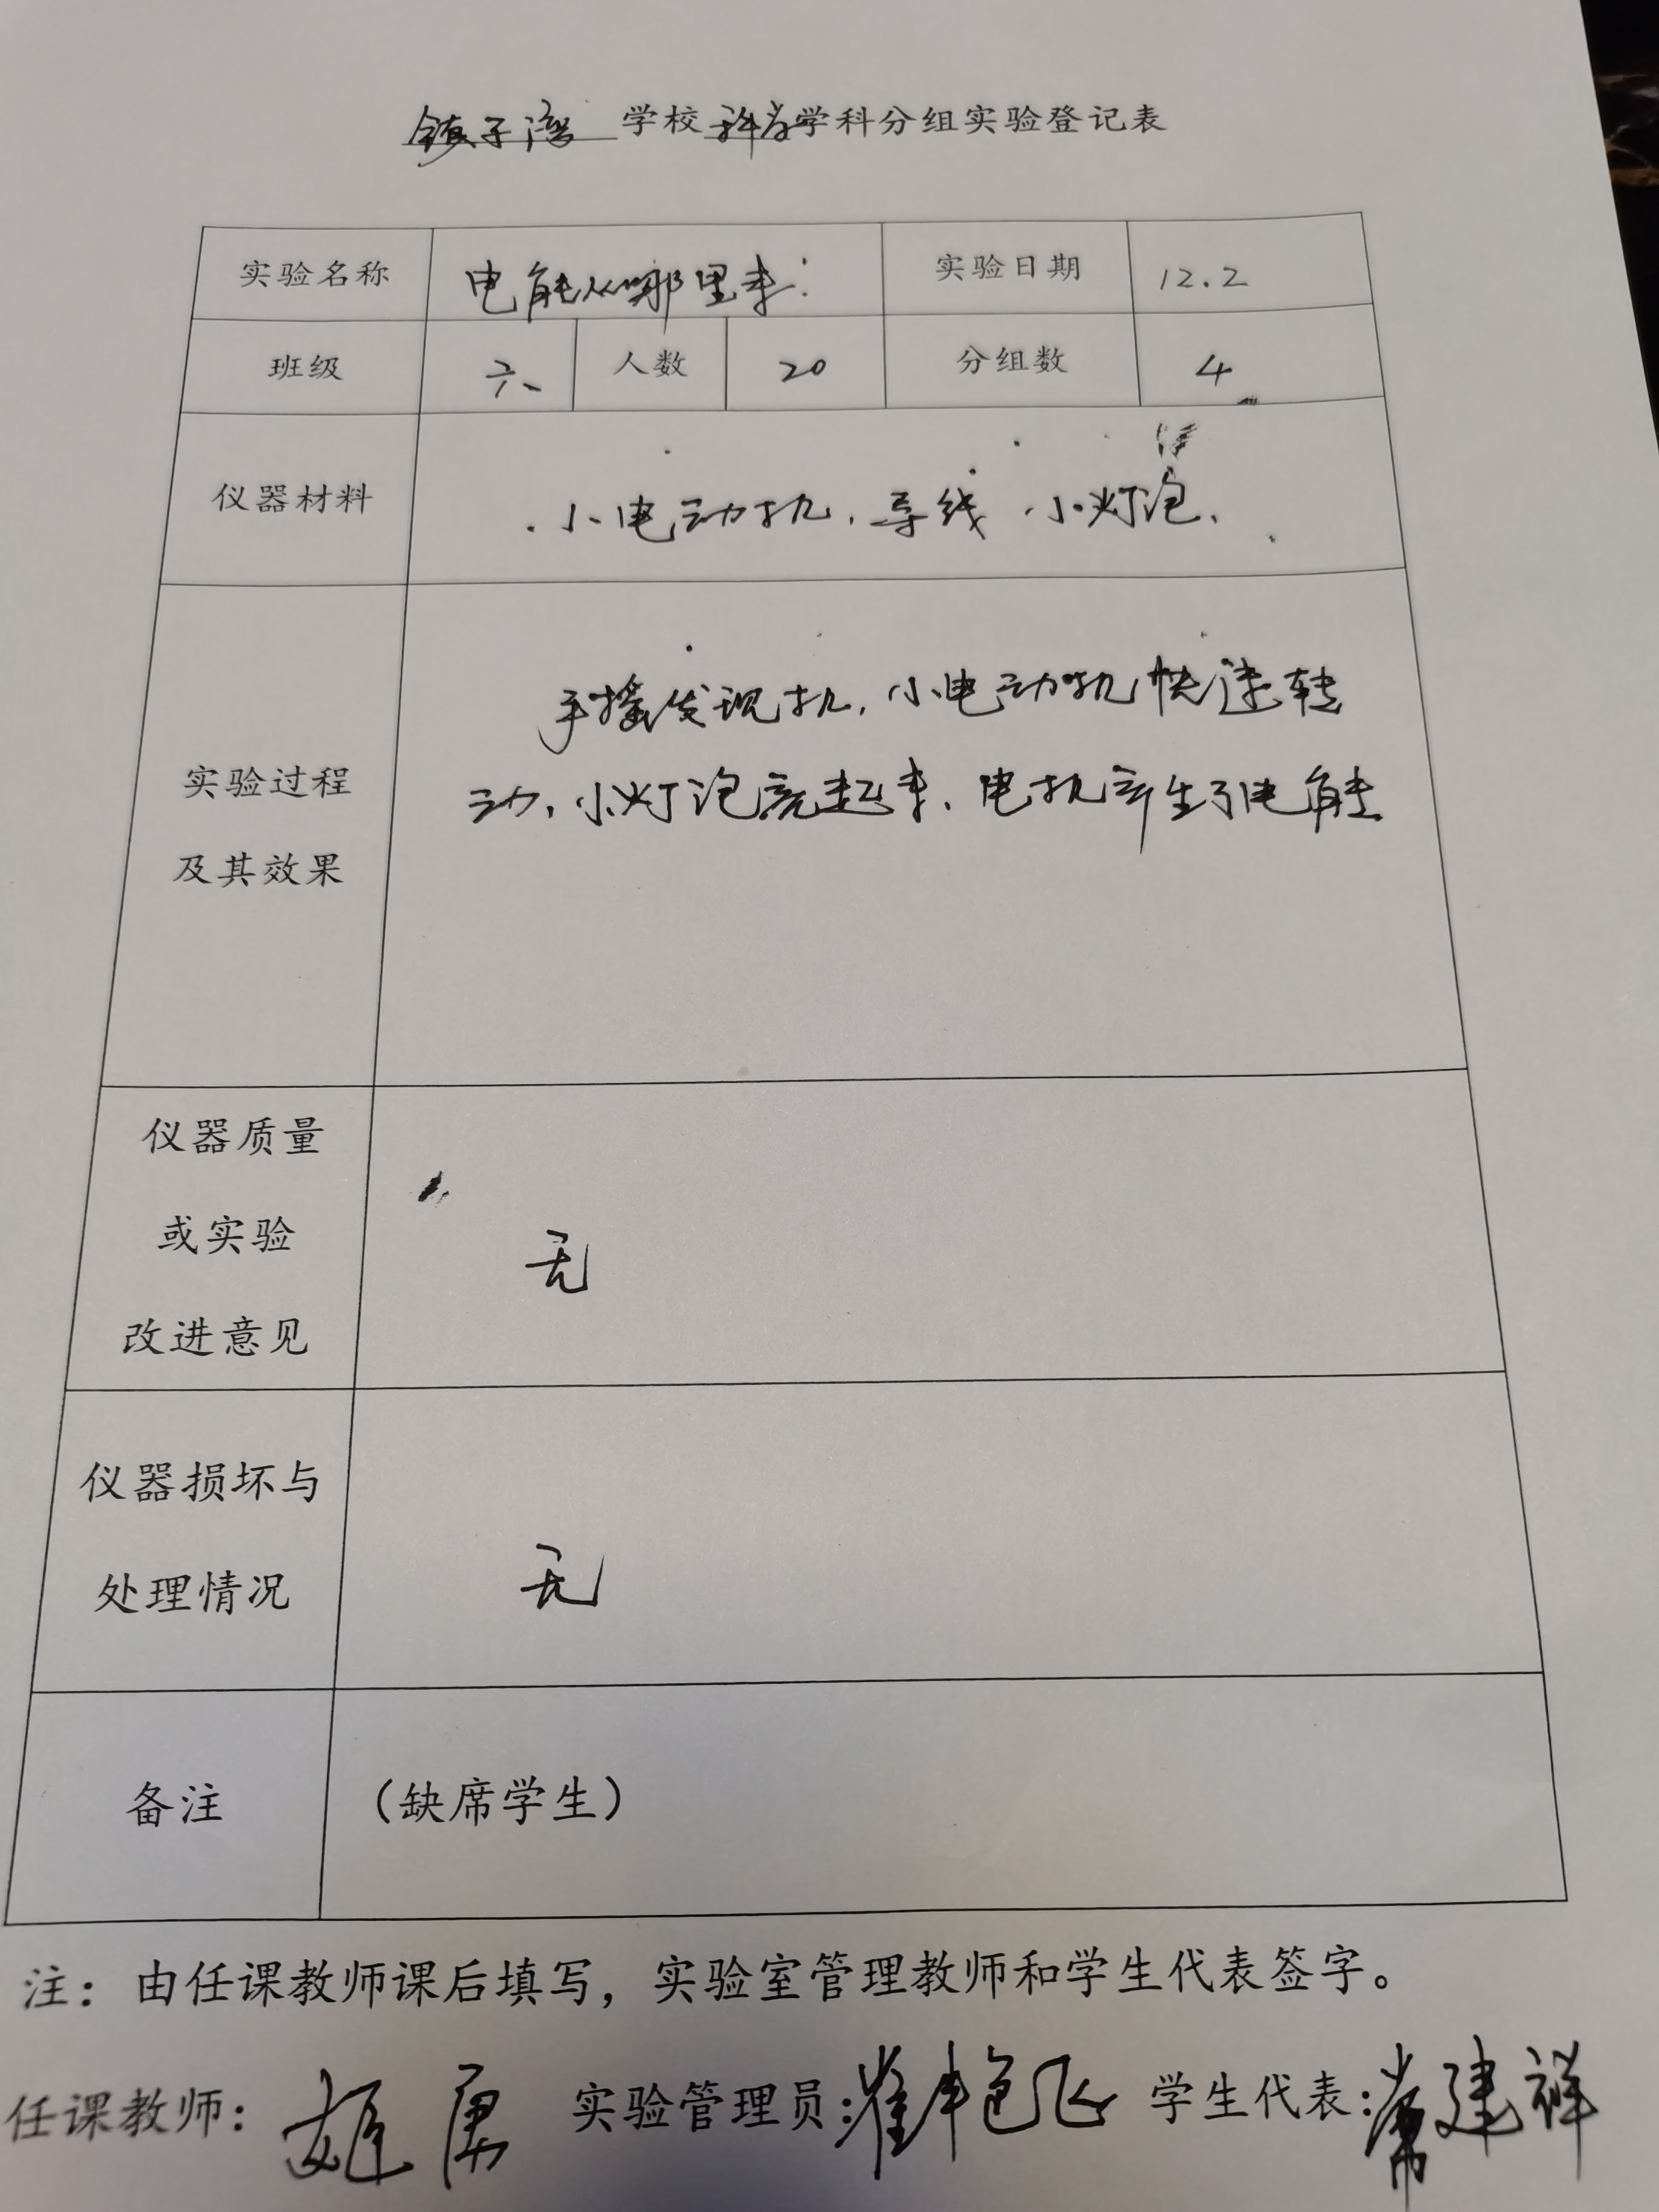 子湾 学校 科学 学科分组实验登记表
实验名称 电能从哪里来 实验日期 12.2
班级 六 人数 20 分组数 4
仪器材料 小电动机，导线，小灯泡、
手摇发现机，小电动机快速转
实验过程 动，小灯泡亮起来、电机产生了电能
及其效果
仪器质量
或实验 无
改进意见
仪器损坏与
处理情况 无
备注 （缺席学生）
注：由任课教师课后填写，实验室管理教师和学生代表签字。
任课教师： 实验管理员： 学生代表：常建祥